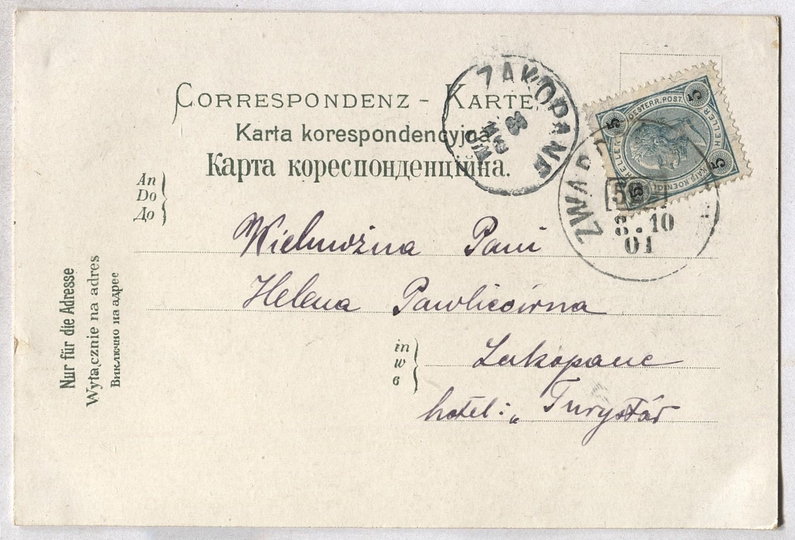 CORRESPONDENZ - KARTE.
Karta korespondencyjna.
Карта кореспонденцiйна.
ZAKOPANE
5 5 5 5
OESTERR. POST.
HELLER HELLER
ZWARD
3.10
01
An
Do
До
Wielmożna Pani
Helena Pawlicówna
in
w
в
Zakopane
hotel: „Turystów
Nur für die Adresse
Wyłącznie na adres
Виключно на адрес